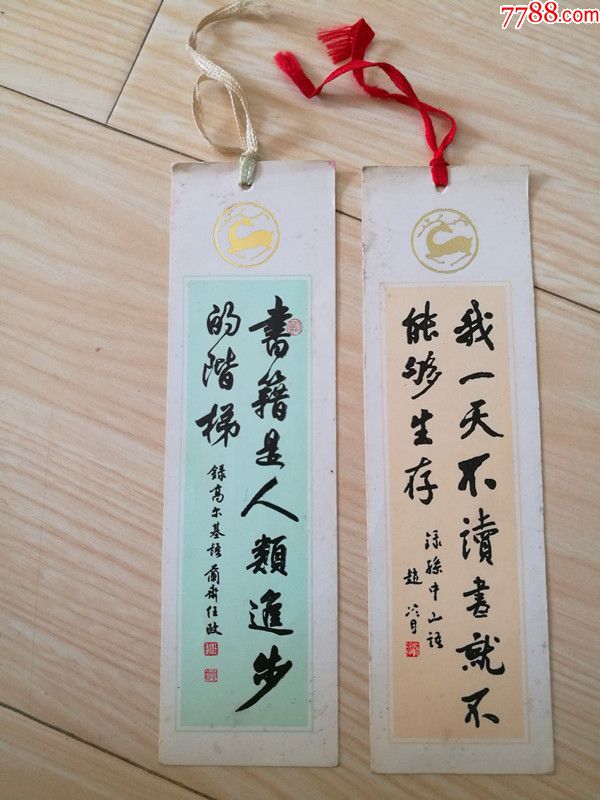 7788.com
書籍是人類進步
的階梯
録高尔基語 蘭齋任政
我一天不讀書就不
能够生存
録孫中山語
趙冷月